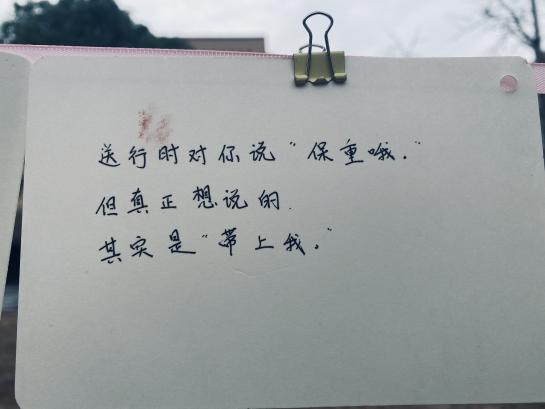 送行时对你说"保重哦."
但真正想说的.
其实是"带上我."